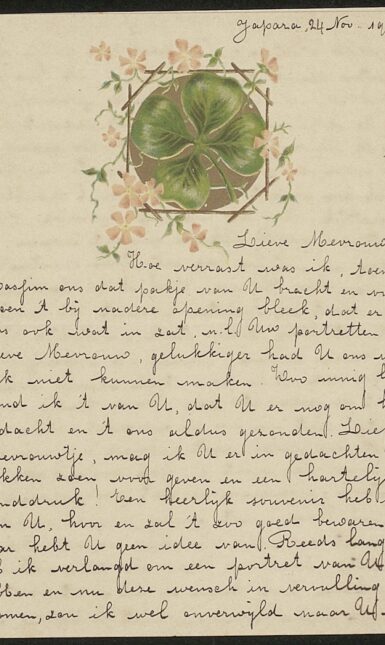 Japara, 24 Nov. 19
Lieve Mevrouw
Hoe verrast was ik, toen
ons dat pakje van U bracht en
en 't bij nadere opening bleek, dat er
ook wat in zat, n.l. Uw portretten
eve Mevrouw, gelukkiger had U ons
k niet kunnen maken. Hoo innig
nd ik 't van U, dat U er nog om
dacht en 't ons aldus gezonden. Lie
evrouwtje, mag ik U er in gedachten
kken zoen voor geven en een hartelij
nddruk! Een heerlijk souvenir heb
n U, hoor en zal 't zoo goed bewaren
ar hebt U geen idee van. Reeds lang
ik verlangd om een portret van U
bben en nu deze wensch in vervulling
omen, zou ik wel onverwijld naar U